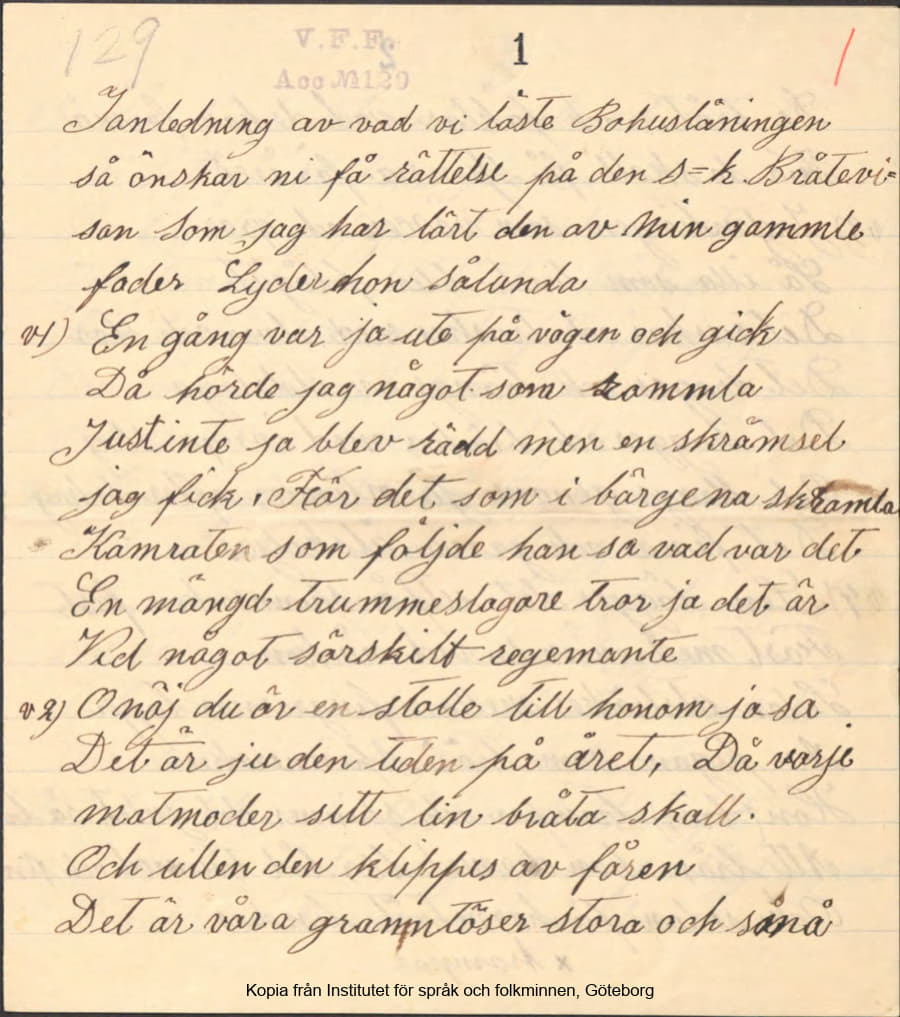 129
V.F.F.
1
Acc № 129
Ianledning av vad vi läste Bohusläningen
så önskar ni få rättelse på den s=k. Bråtevi=
san Som jag har lärt den av Min gammle
fader Lyder hon sålunda
v1) En gång var ja ute på vägen och gick
Då hörde jag något som ramla
Just inte ja blev rädd men en skrämsel
jag fick. För det som i bärgena skramla
Kamraten som följde han sa vad var det
En mängd trummeslagare tror ja det är
Vid något särskilt regemante
v2) O näj du är en stolle till honom ja sa
Det är ju den tiden på året, Då varje
matmoder sitt lin bråta skall.
Och ullen den klippes av fåren
Det är våra granntöser stora och små
Kopia från Institutet för språk och folkminnen, Göteborg